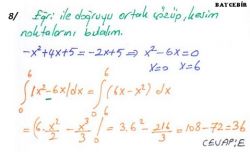 BATCEBİR
8/ Eğri ile doğruyu ortak çözüp, kesim
noktalarını bulalım.
-x²+4x+5=-2x+5 ⇒ x²-6x=0
x=0 x=6
∫₀⁶ |x²-6x|dx = ∫₀⁶ (6x-x²) dx
=(6.x²/2 - x³/3 |₀⁶ = 3.6² - 216/3 = 108-72=36
CEVAP:E